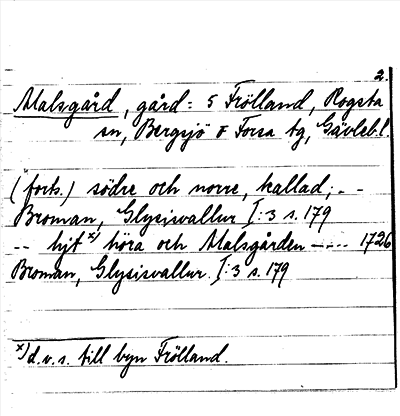 2.
Malsgård, gård: 5 Frölland, Rogsta
sn, Bergsjö o Forsa tg, Gävleb.l.
(forts.) södre och norre, kallad; - -
Broman, Glysisvallur I:3 s. 179
-- hijt x) höra och Malsgården ---- 1726
Broman, Glysisvallur. I:3 s. 179
x) d.v.s. till byn Frölland.